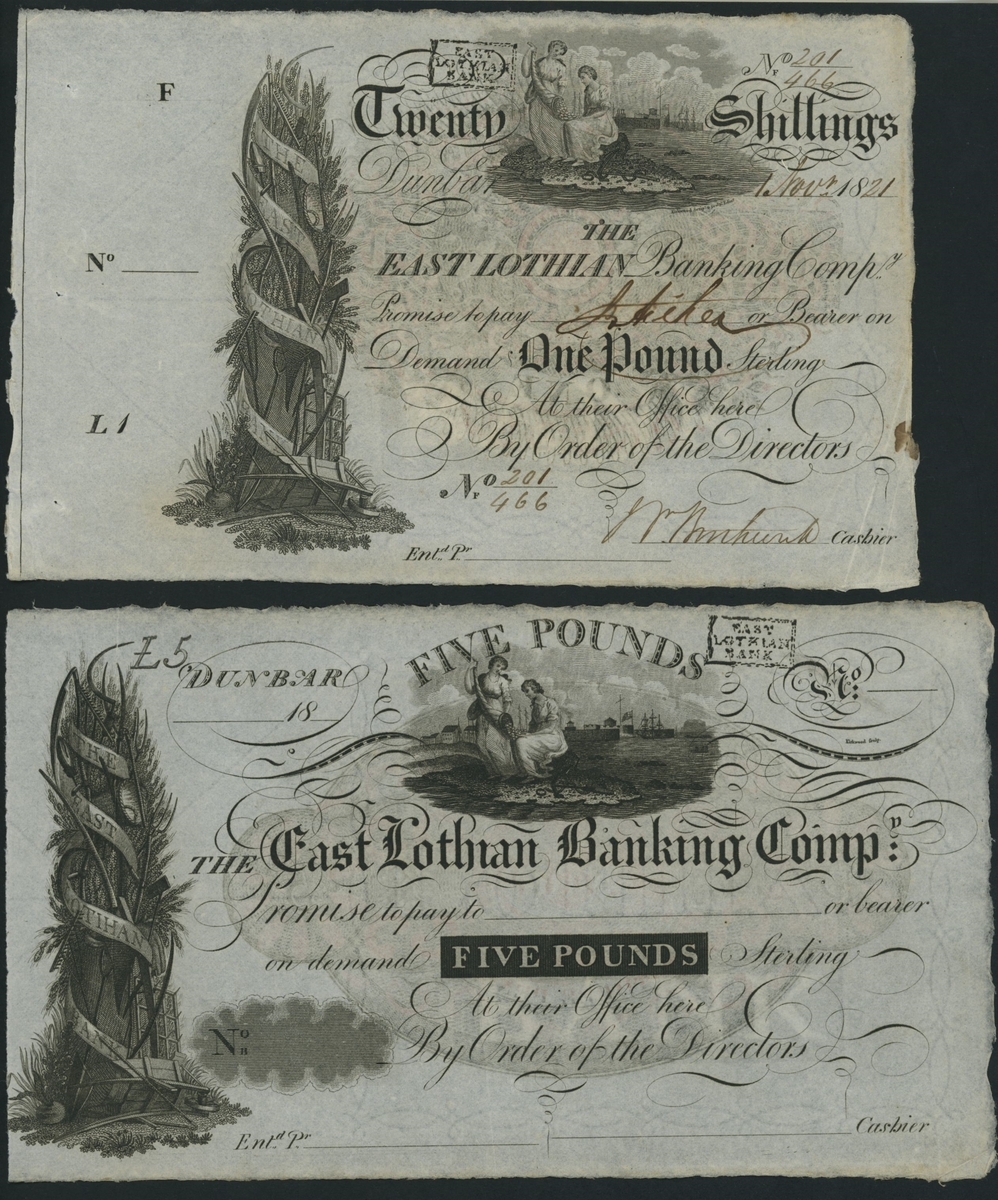 F
EAST
LOTHIAN
BANK
No 201/466
Twenty Shillings
Dunbar 1 Novr. 1821
THE
EAST LOTHIAN Banking Compy.
No
Promise to pay or Bearer on
Demand One Pound Sterling
At their Office here
L 1
By Order of the Directors
No 201/466
Cashier
Entd. Pr.
THE
EAST
LOTHIAN
£5
FIVE POUNDS
EAST
LOTHIAN
BANK
DUNBAR
18
No:
Kirkwood Sculp.
THE East Lothian Banking Compy:
Promise to pay to or bearer
on demand FIVE POUNDS Sterling
At their Office here
No
By Order of the Directors
Cashier
Entd. Pr.
THE
EAST
LOTHIAN
BANK